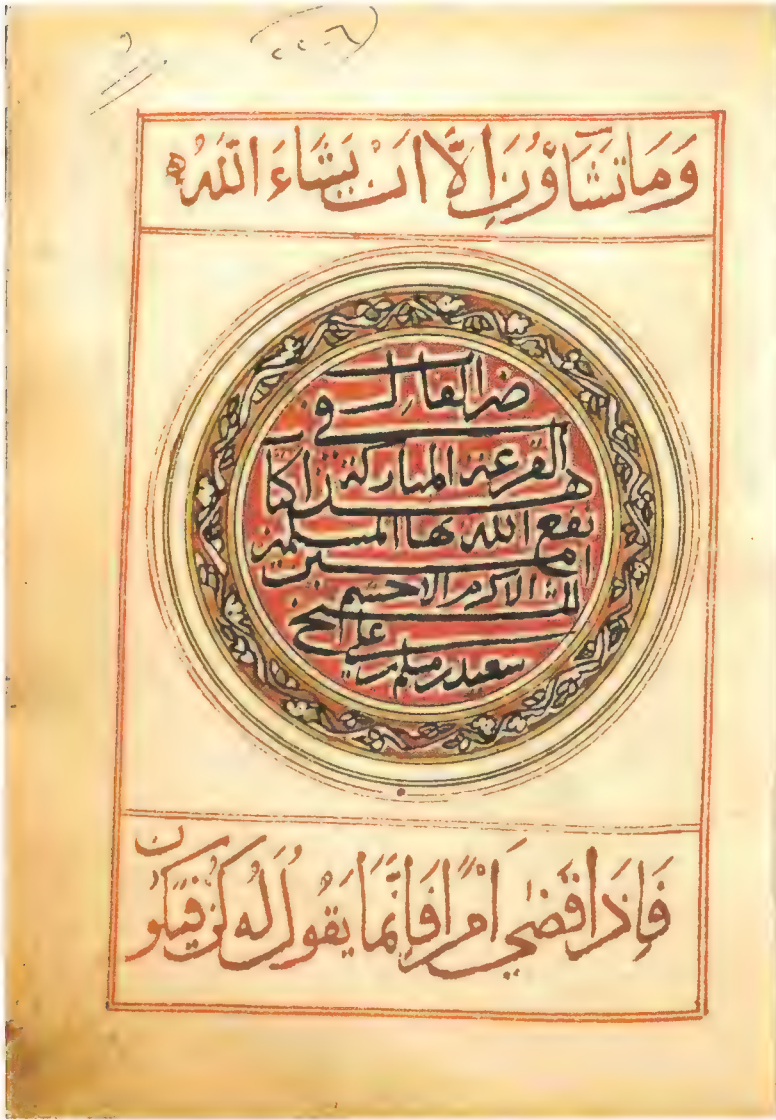 وَمَا تَشَاؤُنَ اِلَّا اَنْ يَشَاءَ اللّٰهُ
في
القرعة المباركة
هذا كتاب
نفع الله بها المسلمين
امين
الاكرم الاحشم
سعيد بن مسلم بن علي
فَاِذَا قَضَى اَمْرًا فَاِنَّمَا يَقُولُ لَهُ كُنْ فَيَكُونُ